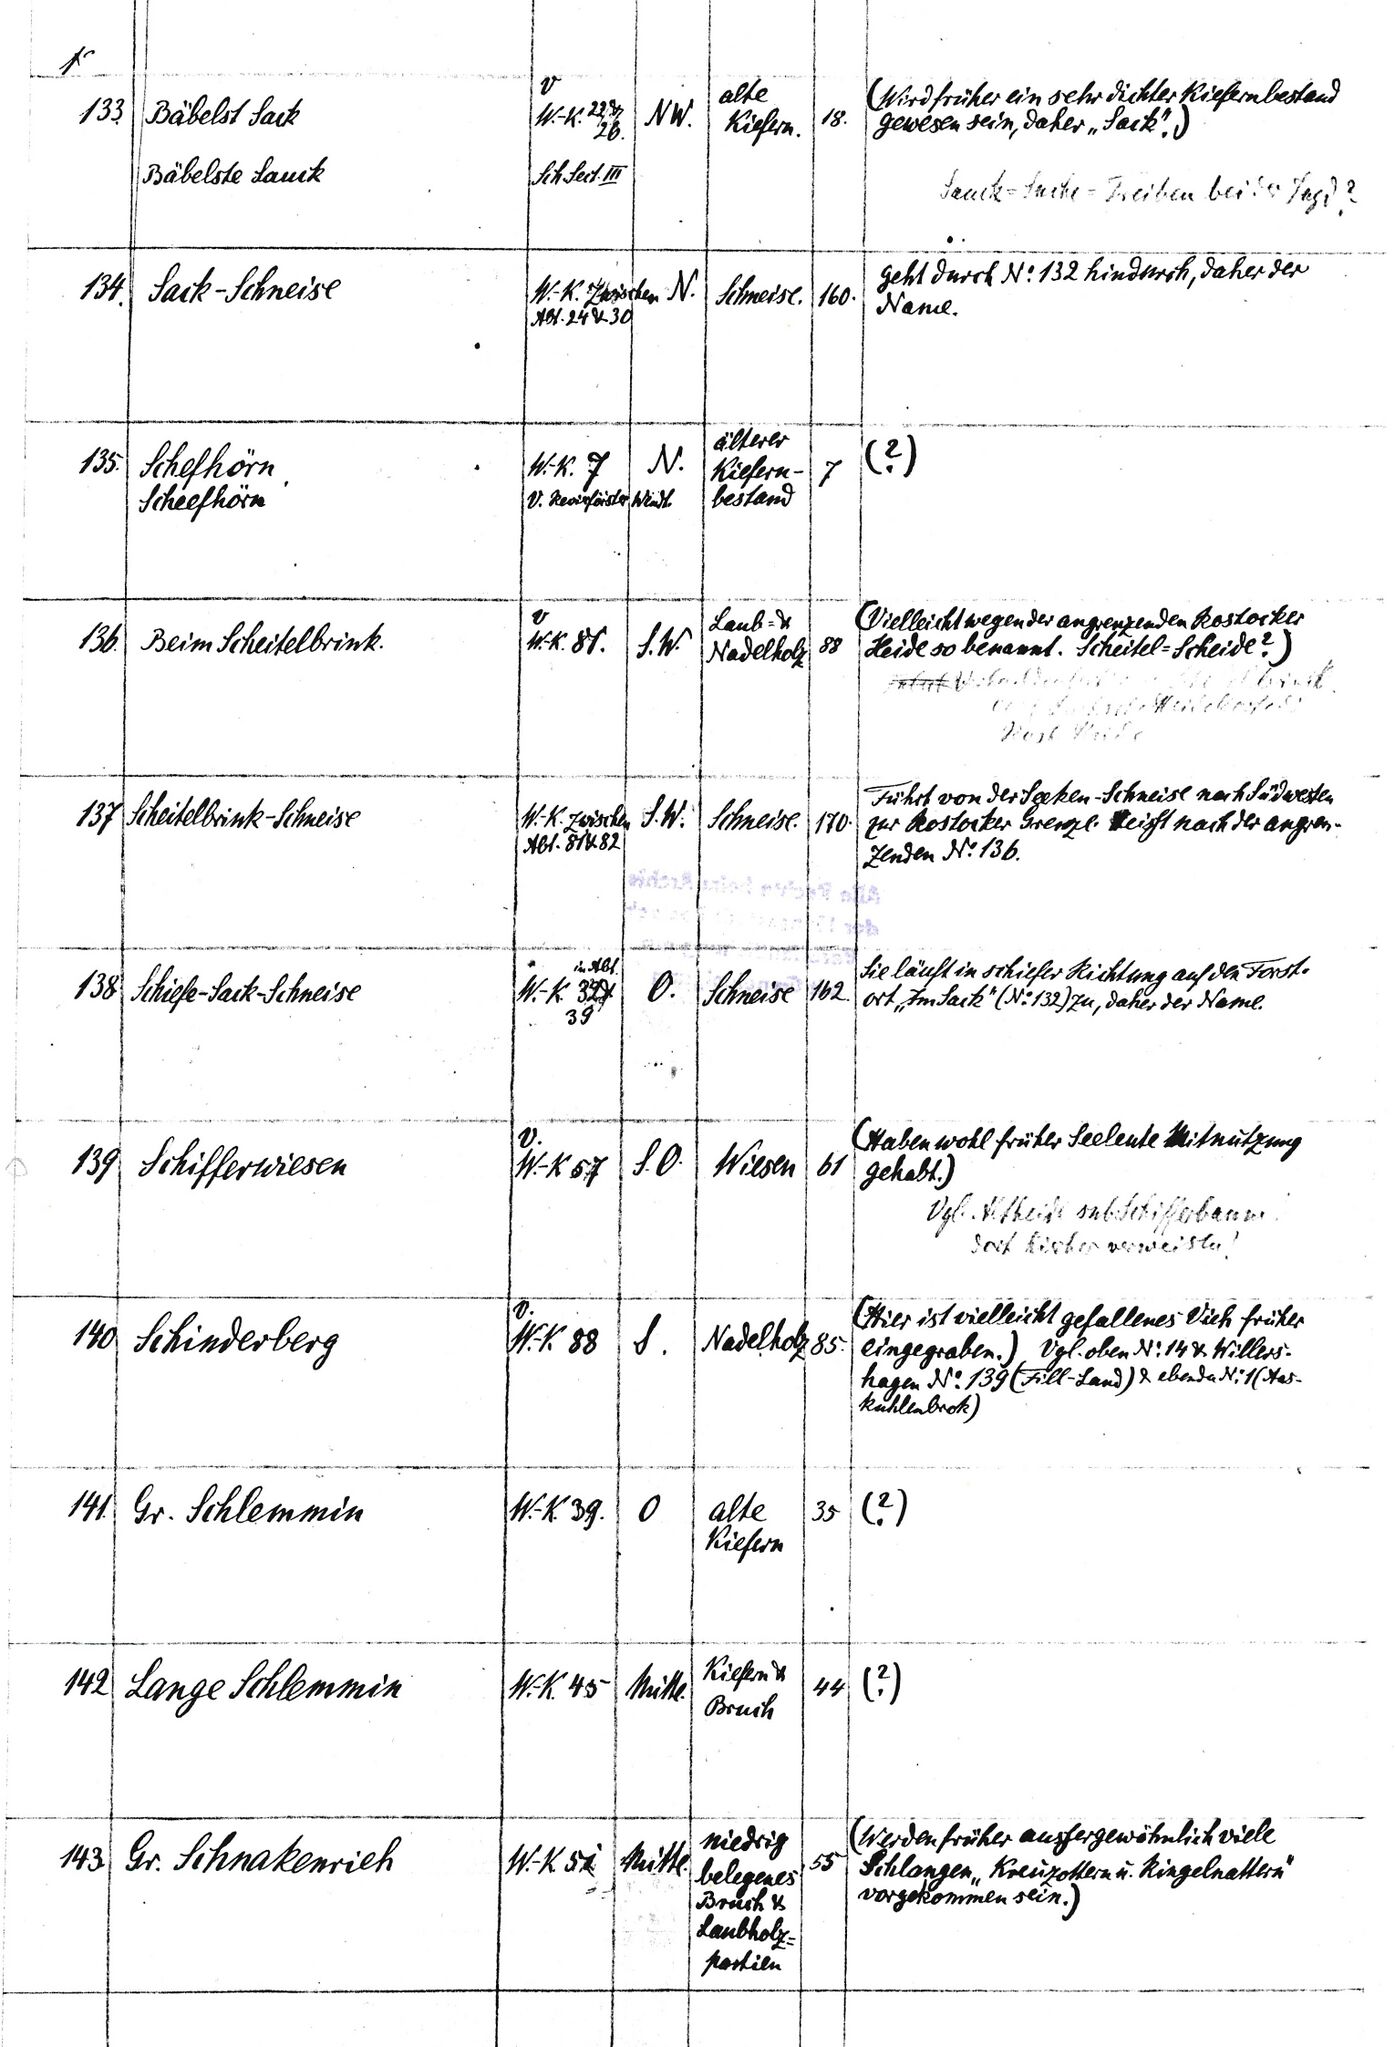 133. Bäbelst Sack
Bäbelste Sauck
v
W.-K. 22 &
26.
Sch Sect. III
NW.
alte
Kiefern.
18.
(Wird früher ein sehr dichter Kiefernbestand
gewesen sein, daher „Sack“.)
Sauck = Suche = Treiben bei der Jagd?
134. Sack-Schneise
W.-K. Zwischen
Abt. 24 & 30
N.
Schneise.
160.
geht durch No. 132 hindurch, daher der
Name.
135. Schefhörn
Scheefhörn
W.-K. 7
v. Revierförster Windt.
N.
älterer
Kiefern-
bestand
7
(?)
136. Beim Scheitelbrink.
v
W.-K. 81.
S.W.
Laub- &
Nadelholz
88
(Vielleicht wegen der angrenzenden Rostocker
Heide so benannt. Scheitel = Scheide?)
137 Scheitelbrink-Schneise
W.-K. zwischen
Abt. 81 & 82
S.W.
Schneise.
170.
Führt von der Söken-Schneise nach Südwesten
zur Rostocker Grenze. Heisst nach der angren-
zenden No. 136.
138 Schiefe-Sack-Schneise
in Abt.
W.-K.
39
O.
Schneise
162.
Sie läuft in schiefer Richtung auf den Forst-
ort „Im Sack“ (No. 132) zu, daher der Name.
139 Schifferwiesen
v.
W.-K 57
S.O.
Wiesen
61
(Haben wohl früher Seeleute Mitnutzung
gehabt.)
Vgl. Altheide sub Schifferbaum!
dort hierher verweisen!
140 Schinderberg
v.
W.-K. 88
S.
Nadelholz
85.
(Hier ist vielleicht gefallenes Vieh früher
eingegraben.) Vgl. oben No. 14 & Willers-
hagen No. 139 (Fill-Land) & ebenda No. 1 (Aas-
kuhlenbrok)
141. Gr. Schlemmin
W.-K. 39.
O
alte
Kiefern
35
(?)
142 Lange Schlemmin
W.-K. 45
Mitte.
Kiefern &
Bruch
44
(?)
143 Gr. Schnakenrieh
W.-K. 51
Mitte.
niedrig
belegenes
Bruch &
Laubholz=
partien
55
(Werden früher aussergewöhnlich viele
Schlangen „Kreuzottern u. Ringelnattern“
vorgekommen sein.)